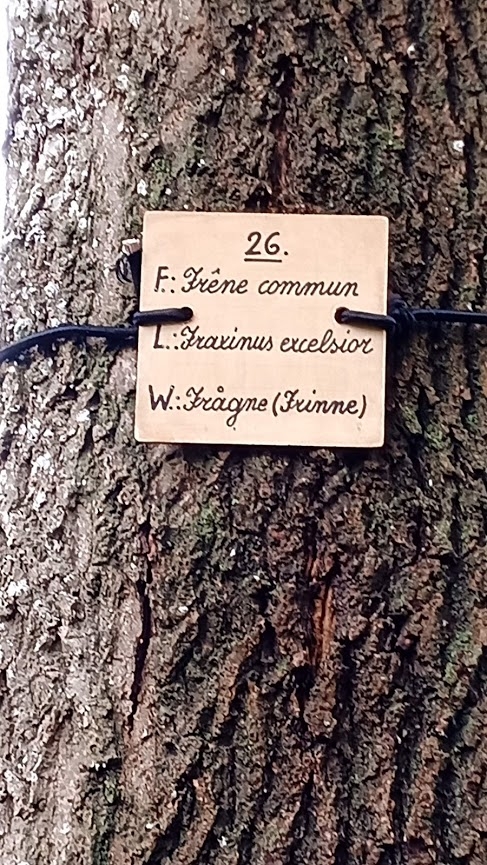 26.
F.: Frêne commun
L.: Fraxinus excelsior
W.: Frågne (Frinne)